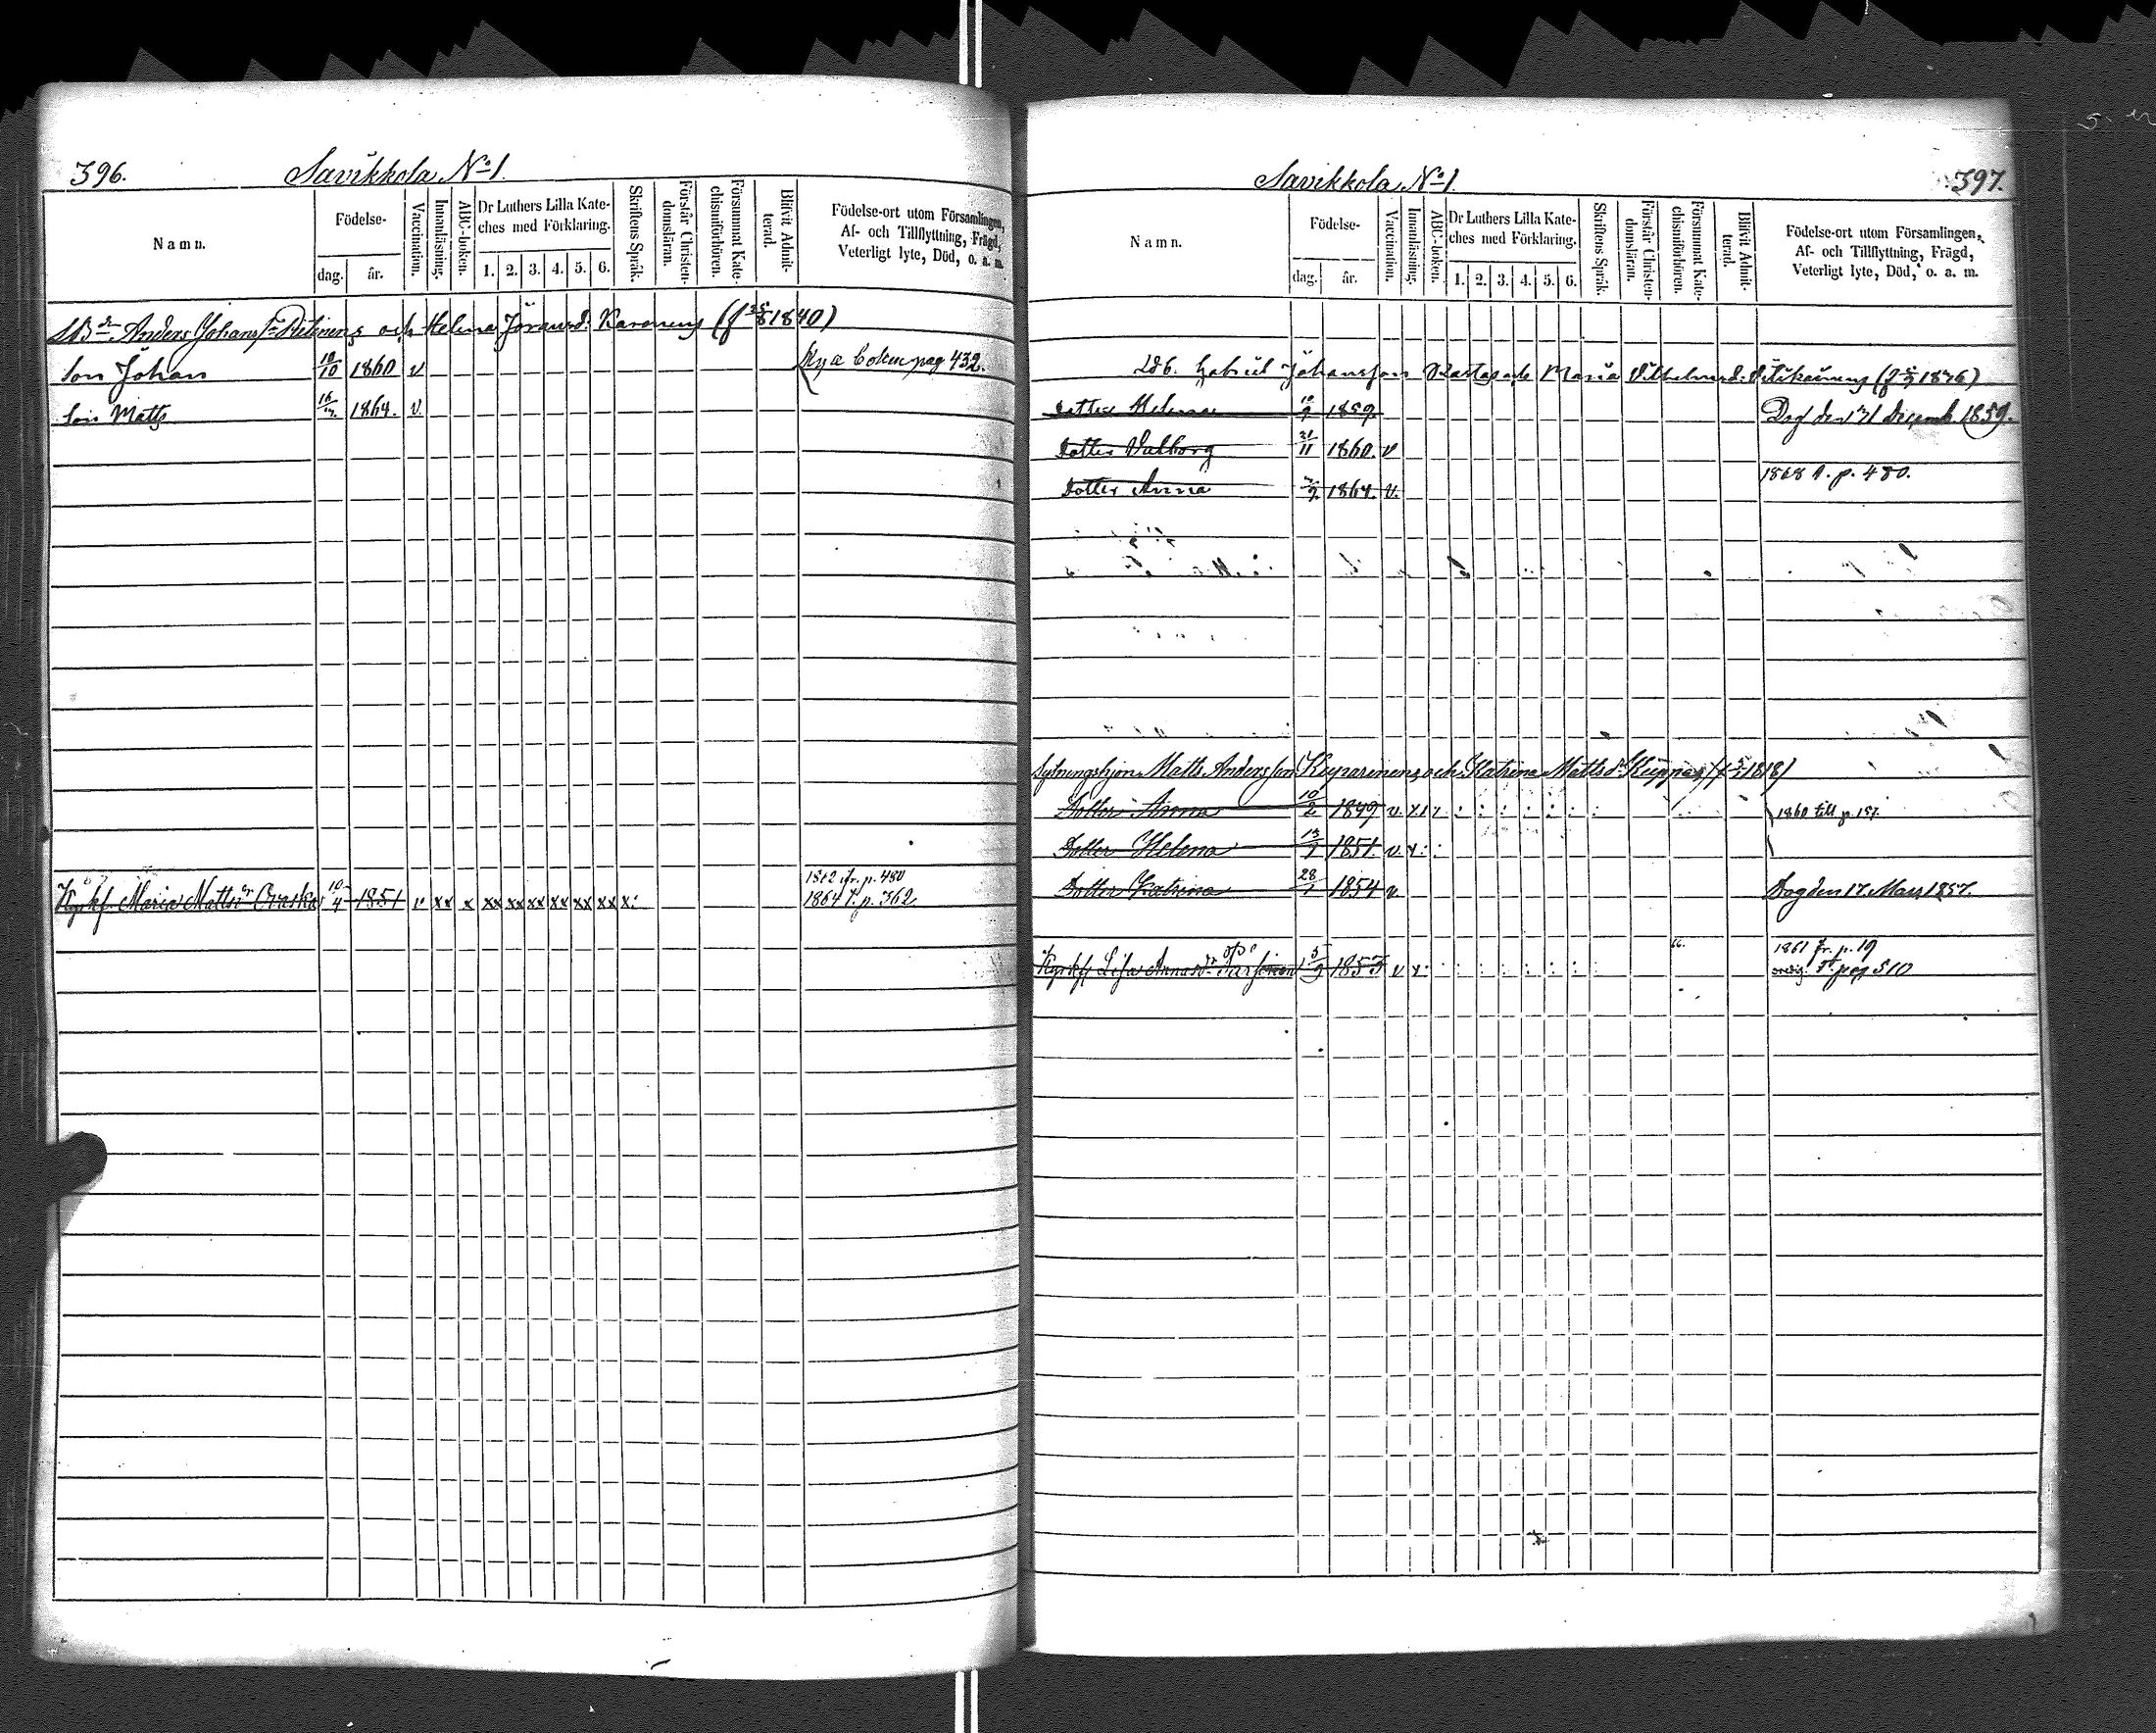 396.
Savikkola No 1.
Namn.
Födelse-
dag. år.
Vaccination.
Innanläsning.
ABC-boken.
Dr Luthers Lilla Kate-
ches med Förklaring.
1. 2. 3. 4. 5. 6.
Skriftens Språk.
Förstår Christen-
domsläran.
Försummat Kate-
chismiförhören.
Blifvit Admit-
terad.
Födelse-ort utom Församlingen,
Af- och Tillflyttning, Frägd,
Veterligt lyte, Död, o. a. m.
Anders Johansson och Helena Göransd. Karonens 1840)
Son Johan 10/10 1860 v Nya boken pag 432.
Son Matts 1864. v.
1862 fr. p. 480
Maria Mattsdr 10/4 1851 v xx x xx xx xx xx xx xx x:
1864 t. p. 362
Savikkola No 1.
397.
Namn.
Födelse-
dag. år.
Vaccination.
Innanläsning.
ABC-boken.
Dr Luthers Lilla Kate-
ches med Förklaring.
1. 2. 3. 4. 5. 6.
Skriftens Språk.
Förstår Christen-
domsläran.
Försummat Kate-
chismiförhören.
Blifvit Admit-
terad.
Födelse-ort utom Församlingen,
Af- och Tillflyttning, Frägd,
Veterligt lyte, Död, o. a. m.
Gabriel Johansson Rastas och Maria Vilhelmsd.
Dotter Helena 1859. Dog den 31 Decemb. 1859.
Dotter Valborg 21/11 1860. v
1868 t. p. 480.
Dotter Anna 1864. v.
Sytningshjon Matts Andersson Kuparinens och Katrina Mattsdr 1818)
Dotter Anna 10/2 1849 v. 1860 till p. 157.
Dotter Helena 1851. v x
Dotter Katrina 28/1 1854 v Dog den 17 Mars 1857.
1861 fr. p. 19
Lisa Annasdr 1853 v x pag 510